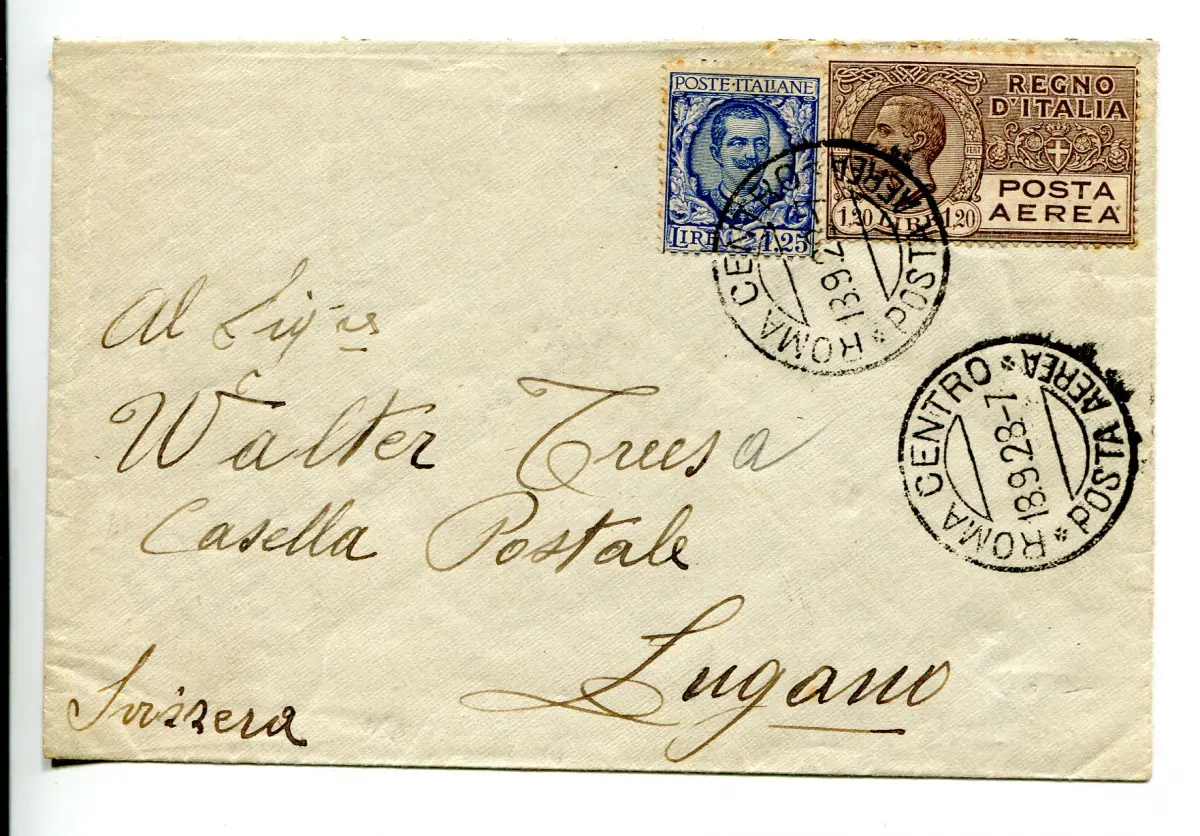 POSTE·ITALIANE
LIRE 1,25
REGNO
D'ITALIA
POSTA
AEREA
1,20 LIRE 1,20
ROMA CENTRO * POSTA AEREA *
18.9.28-7
ROMA CENTRO * POSTA AEREA *
18.9.28-7
Al Sig.
Walter
Casella Postale
Lugano
Svizzera